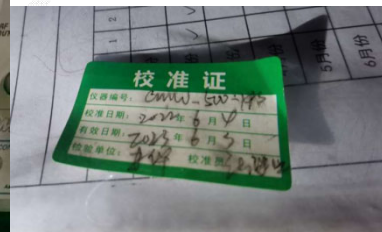 1 2
5月份
6月份
校准证
仪器编号：CMW-500-
校准日期：2022年6月4日
有效日期：2023年6月3日
检验单位： 校准员